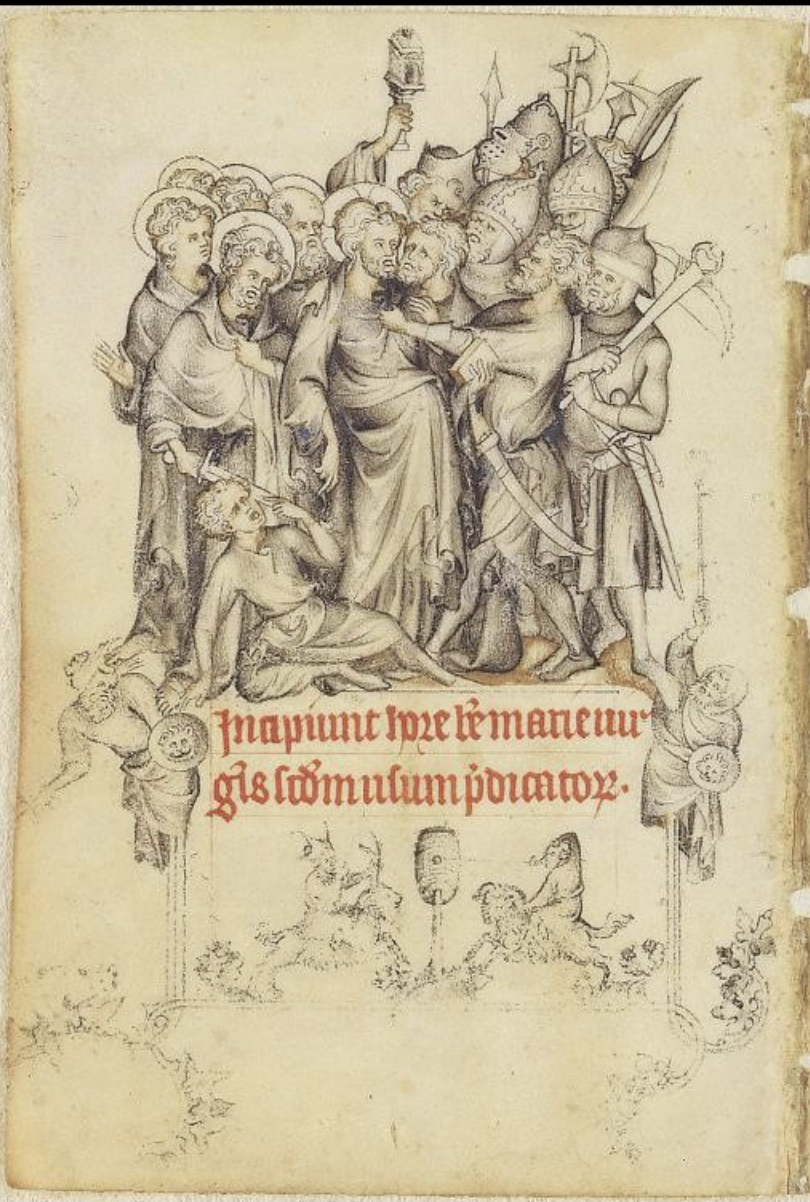 Incipiunt hore bẽ marie uir
gĩs scd̃m usum p̃dicatoꝝ.